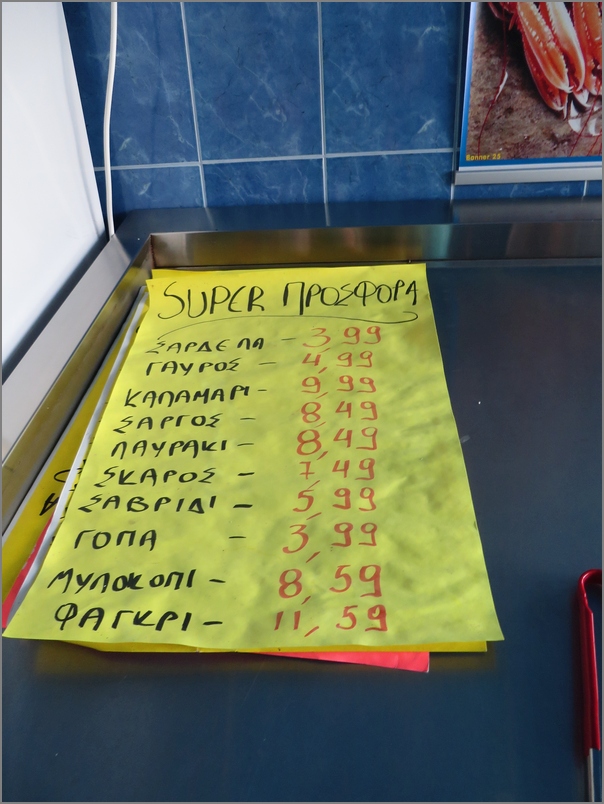 SUPER ΠΡΟΣΦΟΡΑ
ΣΑΡΔΕΛΑ - 3,99
ΓΑΥΡΟΣ - 4,99
ΚΑΛΑΜΑΡΙ - 9,99
ΣΑΡΓΟΣ - 8,49
ΛΑΥΡΑΚΙ - 8,49
ΣΚΑΡΟΣ - 7,49
ΣΑΒΡΙΔΙ - 5,99
ΓΟΠΑ - 3,99
ΜΥΛΟΚΟΠΙ - 8,59
ΦΑΓΚΡΙ - 11,59
Banner 25